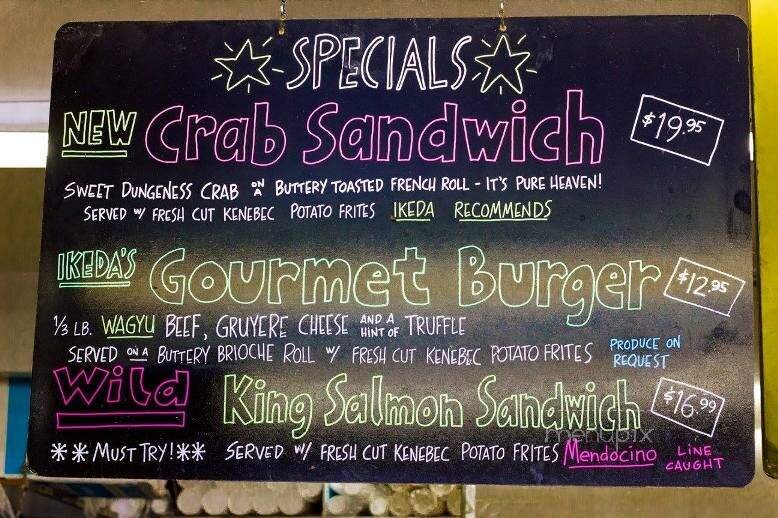 SPECIALS
NEW Crab Sandwich $19.95
SWEET DUNGENESS CRAB ON A BUTTERY TOASTED FRENCH ROLL - IT'S PURE HEAVEN!
SERVED W/ FRESH CUT KENEBEC POTATO FRITES IKEDA RECOMMENDS
IKEDA'S Gourmet Burger $12.95
1/3 LB. WAGYU BEEF, GRUYERE CHEESE AND A HINT OF TRUFFLE
SERVED ON A BUTTERY BRIOCHE ROLL W/ FRESH CUT KENEBEC POTATO FRITES PRODUCE ON REQUEST
Wild King Salmon Sandwich $16.99
menupix
** MUST TRY! ** SERVED W/ FRESH CUT KENEBEC POTATO FRITES Mendocino LINE CAUGHT